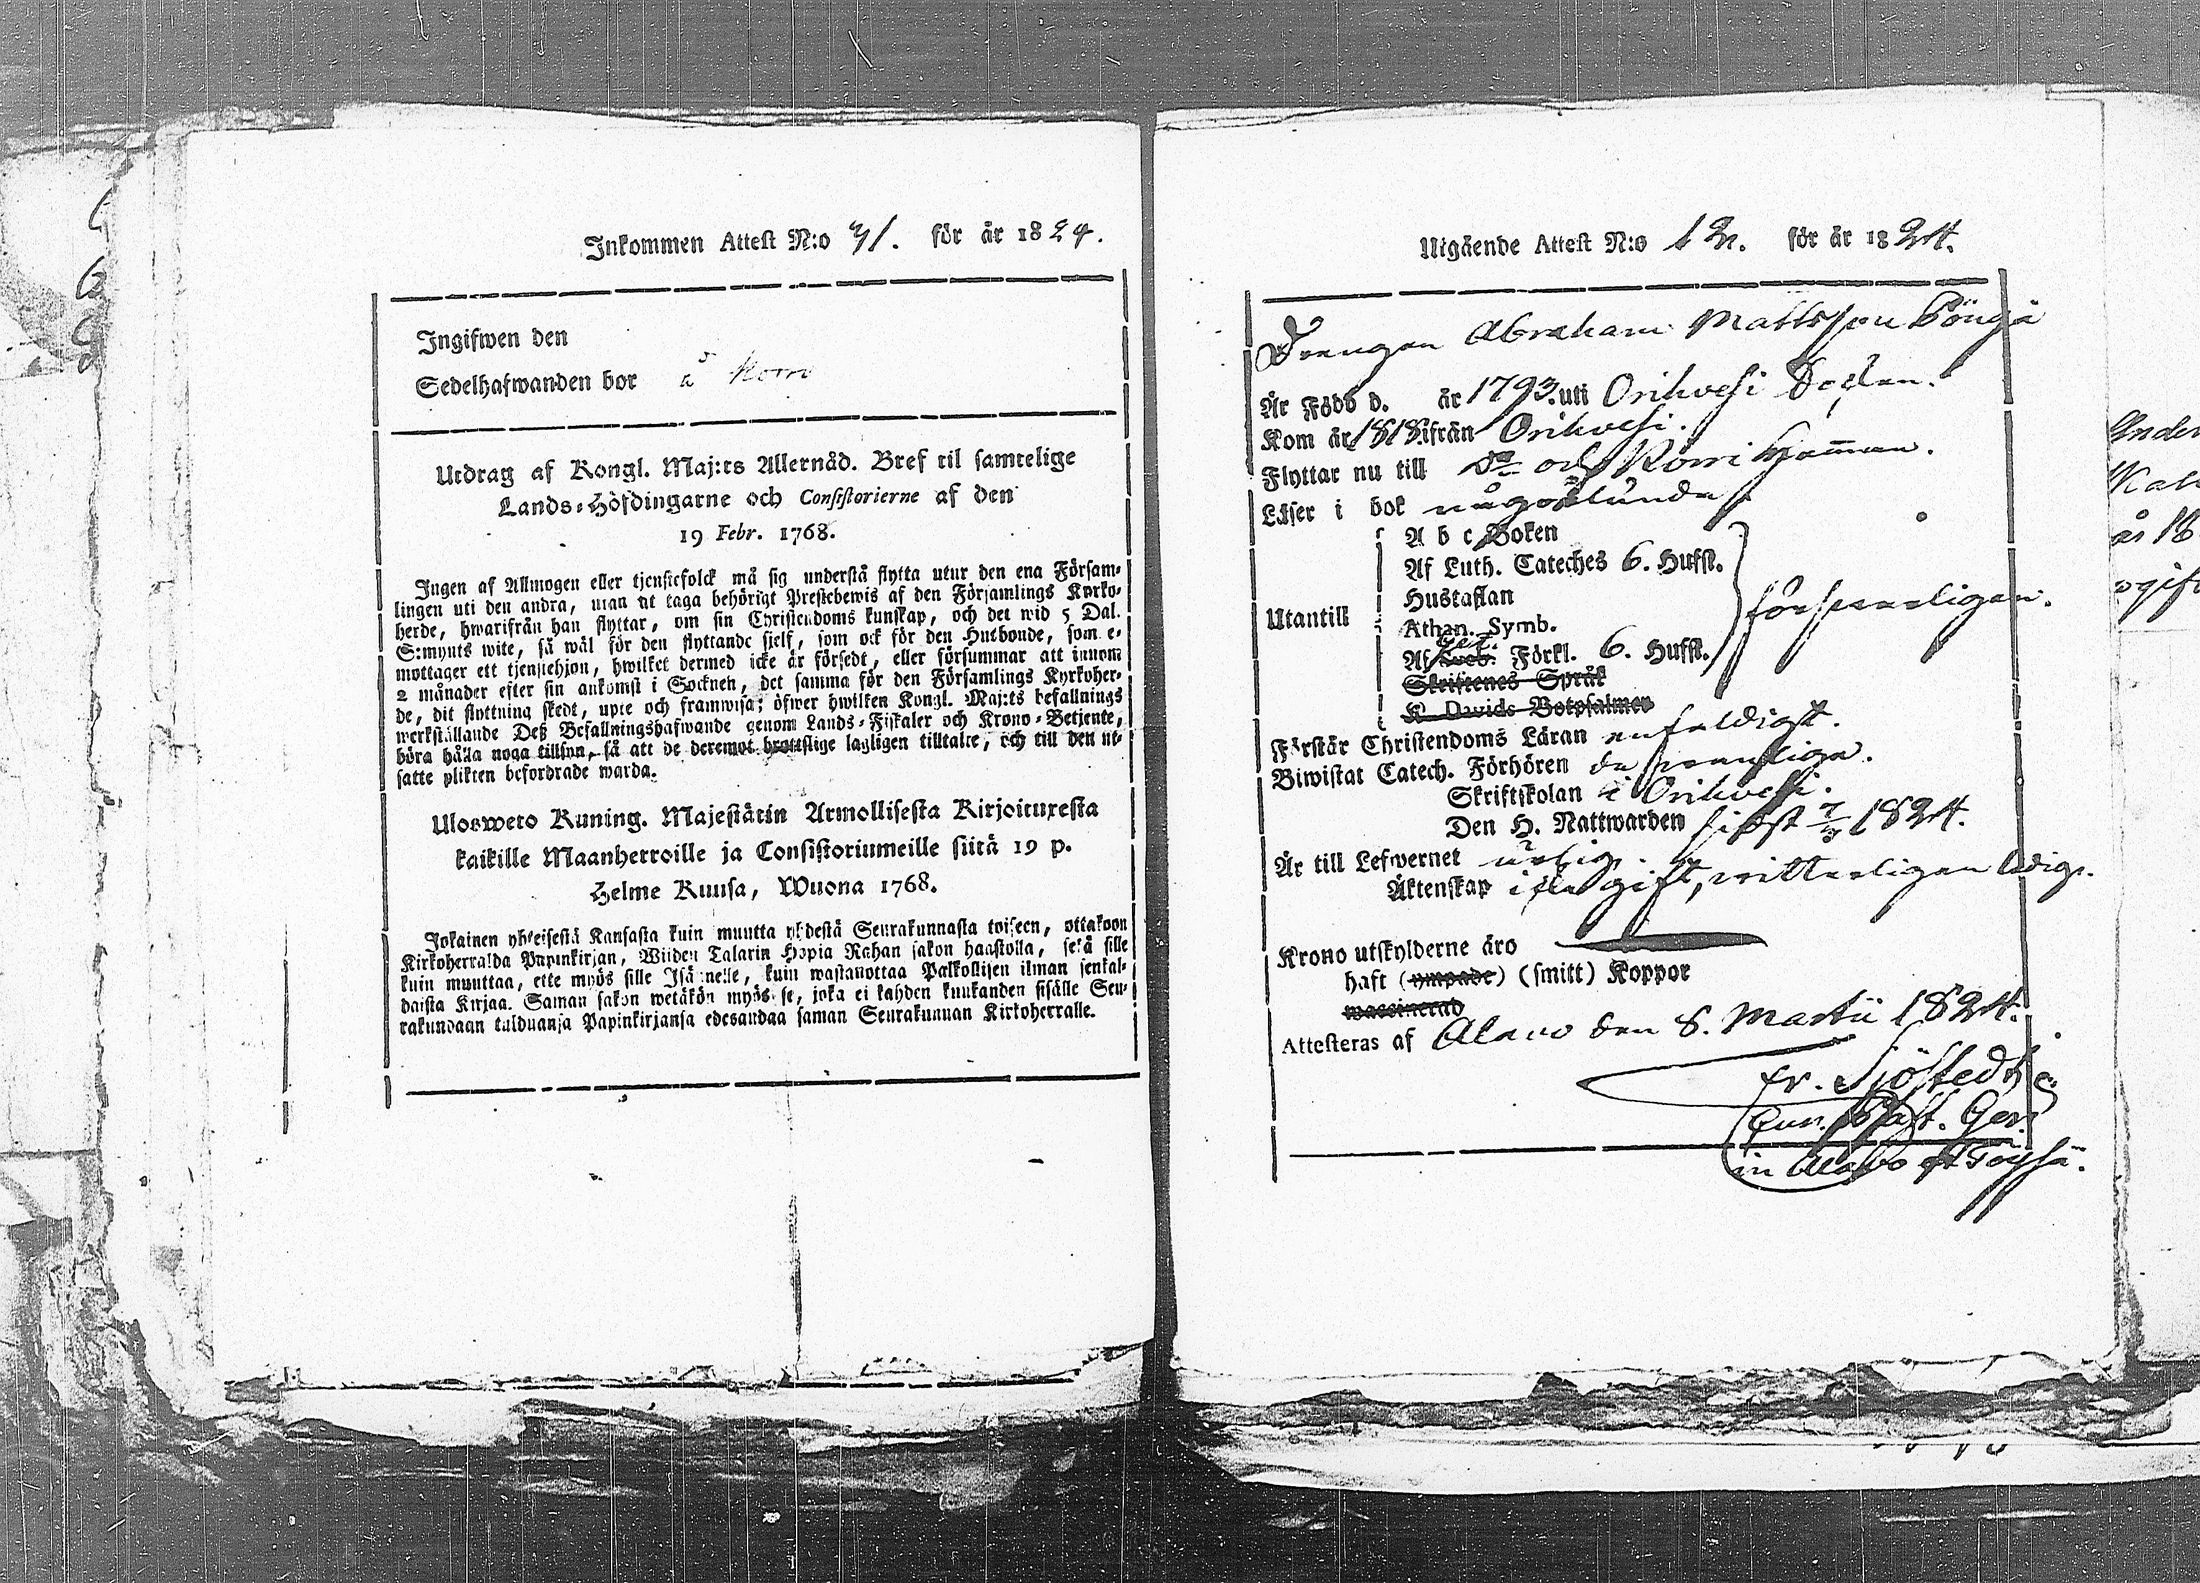 Inkommen Attest N:o 71. för år 1824.
Ingifwen den
Sedelhafwanden bor å Korro
Utdrag af Kongl. Maj:ts Allernåd. Bref til samtelige
Lands-Höfdingarne och Consistorierne af den
19 Febr. 1768.
Ingen af Allmogen eller tjenstefolck må sig understå flytta utur den ena Försam-
lingen uti den andra, utan at taga behörigt Prestebewis af den Församlings Kyrko-
herde, hwarifrån han flyttar, om sin Christendoms kunskap, och det wid 5 Dal.
S:mynts wite, så wäl för den flyttande sjelf, som ock för den Husbonde, som e-
mottager ett tjenstehjon, hwilket dermed icke är försedt, eller försummar att innom
2 månader efter sin ankomst i Socknen, det samma för den Församlings Kyrkoher-
de, dit flyttning skedt, upte och framwisa; öfwer hwilken Kongl. Maj:ts befallnings
werkställande Deß Befallningshafwande genom Lands-Fiskaler och Krono-Betjente,
böra hålla noga tillsyn, så att de deremot brottslige lagligen tilltalte, och till den ut-
satte plikten befordrade warda.
Ulosweto Kuning. Majestätin Armollisesta Kirjoituxesta
kaikille Maanherroille ja Consistoriumeille siitä 19 p.
Helme Kuusa, Wuona 1768.
Jokainen yhteisestä Kansasta kuin muutta yhdestä Seurakunnasta toiseen, ottakoon
Kirkoherralda Papinkirjan, Wiiden Talarin Hopia Rahan sakon haastolla, sekä sille
kuin muuttaa, ette myös sille Isännelle, kuin wastanottaa Palkollisen ilman senkal-
daista Kirjaa. Saman sakon wetäkön myös se, joka ei kahden kuukanden sisälle Seu-
rakundaan tulduanja Papinkirjansa edesandaa saman Seurakunnan Kirkoherralle.
Utgående Attest N:o 12. för år 1824.
Drengen Abraham Mattsson Pöngä
Är Född d. år 1793. uti Orihvesi Socken.
Kom år 1818. ifrån Orihvesi.
Flyttar nu till och Korri Hemman.
Läser i bok någorlunda
A b c Boken
Af Luth. Cateches 6. Hufst.
Hustaflan
Utantill
Athan. Symb.
försvarligen.
Af Sveb. Förkl. 6. Hufst.
Skriftenes Språk
K. Davids Botpsalmer
Förstår Christendoms Läran enfaldigt.
Biwistat Catech. Förhören de vanliga.
Skriftskolan i Orihvesi.
Den H. Nattwarden sidst 7/3 1824.
Är till Lefwernet ärlig.
Äktenskap icke gift, vitterligen ledig.
Krono utskylderne äro
haft (ympade) (smitt) Koppor
waccinerad
Attesteras af Alavo den 8. Martii 1824.
Fr. Sjöstedt
Cur. Past. Ger.
in Alavo et Töysä.